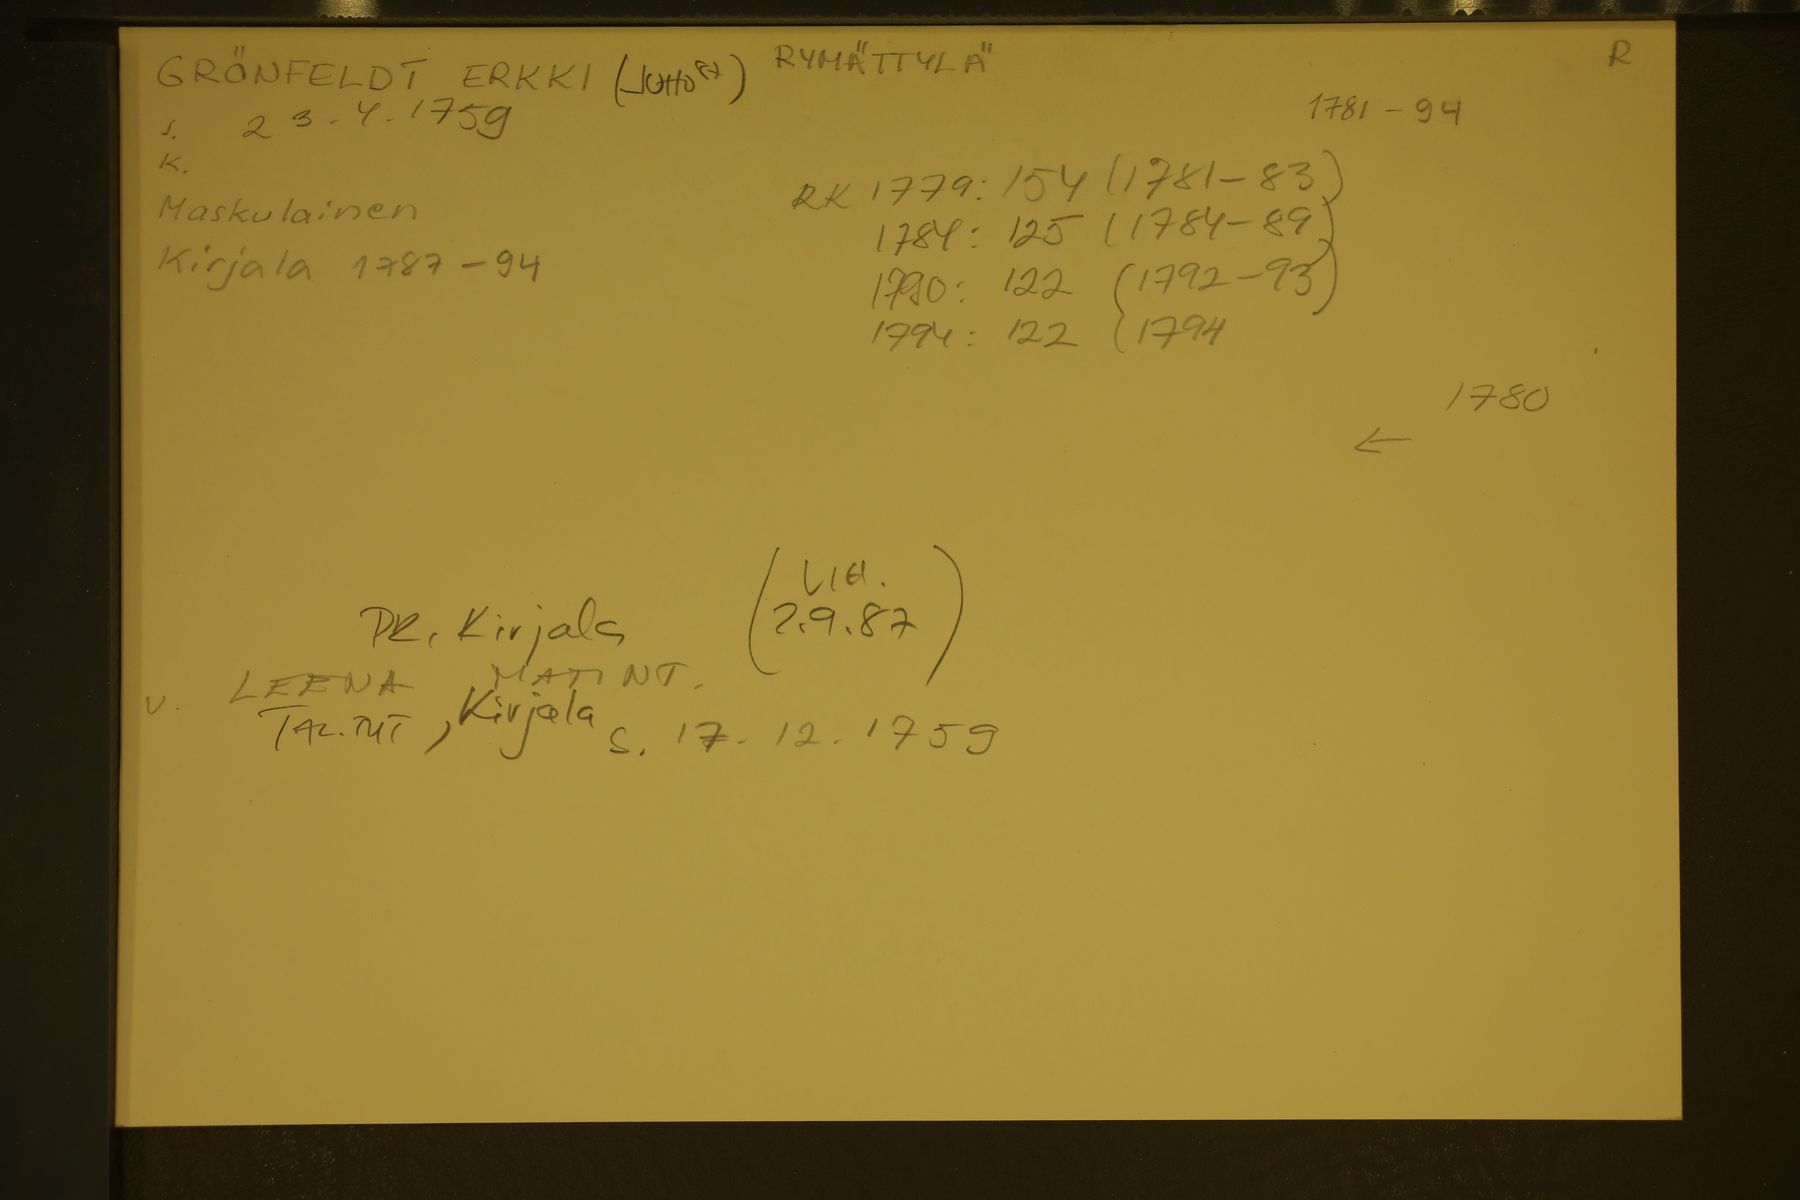 GRÖNFELDT ERKKI RYMÄTTYLÄ R
s. 23.4.1759
1781-94
k.
Maskulainen
Kirjala 1787-94
RK 1779: 154 (1781-83)
1784: 125 (1784-89)
1790: 122 (1792-93)
1794: 122 (1794
1780
←
PR. Kirjala (VIH. 2.9.87)
v. LEENA MATINT.
TAL.TYT, Kirjala s. 17.12.1759